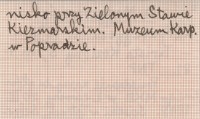 nisko przy Zielonym Stawie
Kiezmarskim. Muzeum Karp.
w Popradzie.